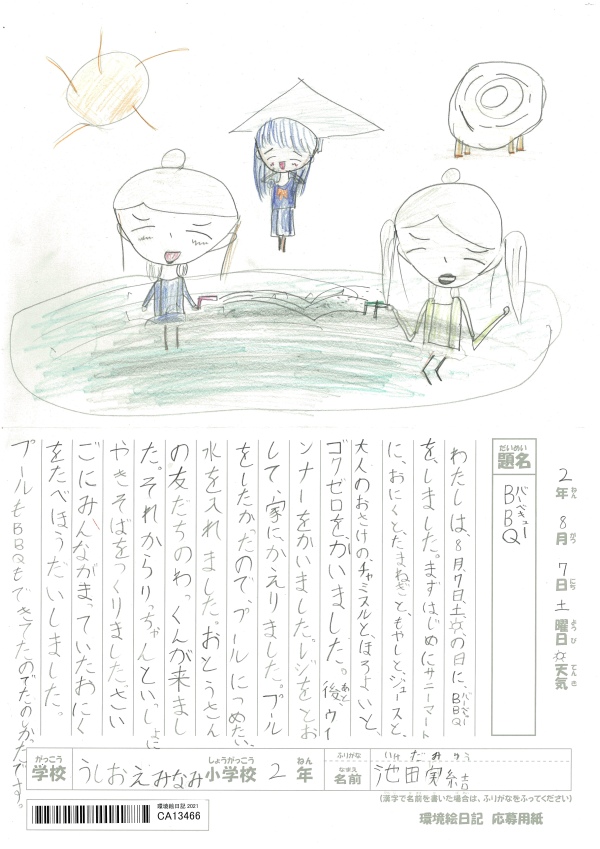 2年 8月 7日 土曜日 ☼天気
ねん がつ にち ようび てんき
だいめい
題名
バーベキュー
BBQ
わたしは、8月7日、土☼の日に、BBQ
バーベキュー
を、しました。まずはじめにサニーマート
に、おにくと、たまねぎと、もやしと、ジュースと、
大人のおさけのチャミスルと、ほろよいと、
ゴクゼロを、かいました。後、ウイ
あと
ンナーをかいました。レジをとお
して、家にかえりました。プール
をしたかったので、プールにつめたい、
水を入れました。おとうさん
の友だちのわっくんが来まし
た。それからりっちゃんといっしょに
やきそばをつくりましたさい
ごにみんながまっていたおにく
をたべほうだいしました。
プールもBBQもできてたのでたのかたです。
がっこう
学校
うしおえみなみ
しょうがっこう
小学校
2
ねん
年
ふりがな
なまえ
名前
いけだみゆう
池田実結
(漢字で名前を書いた場合は、ふりがなをふってください)
環境絵日記 2021
CA13466
環境絵日記 応募用紙